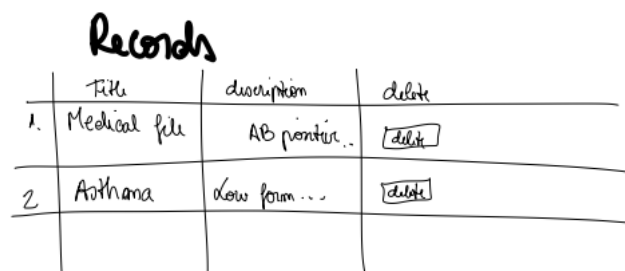 Records
Title description delete
1. Medical file AB positive.. delete
2 Asthma Low form... delete